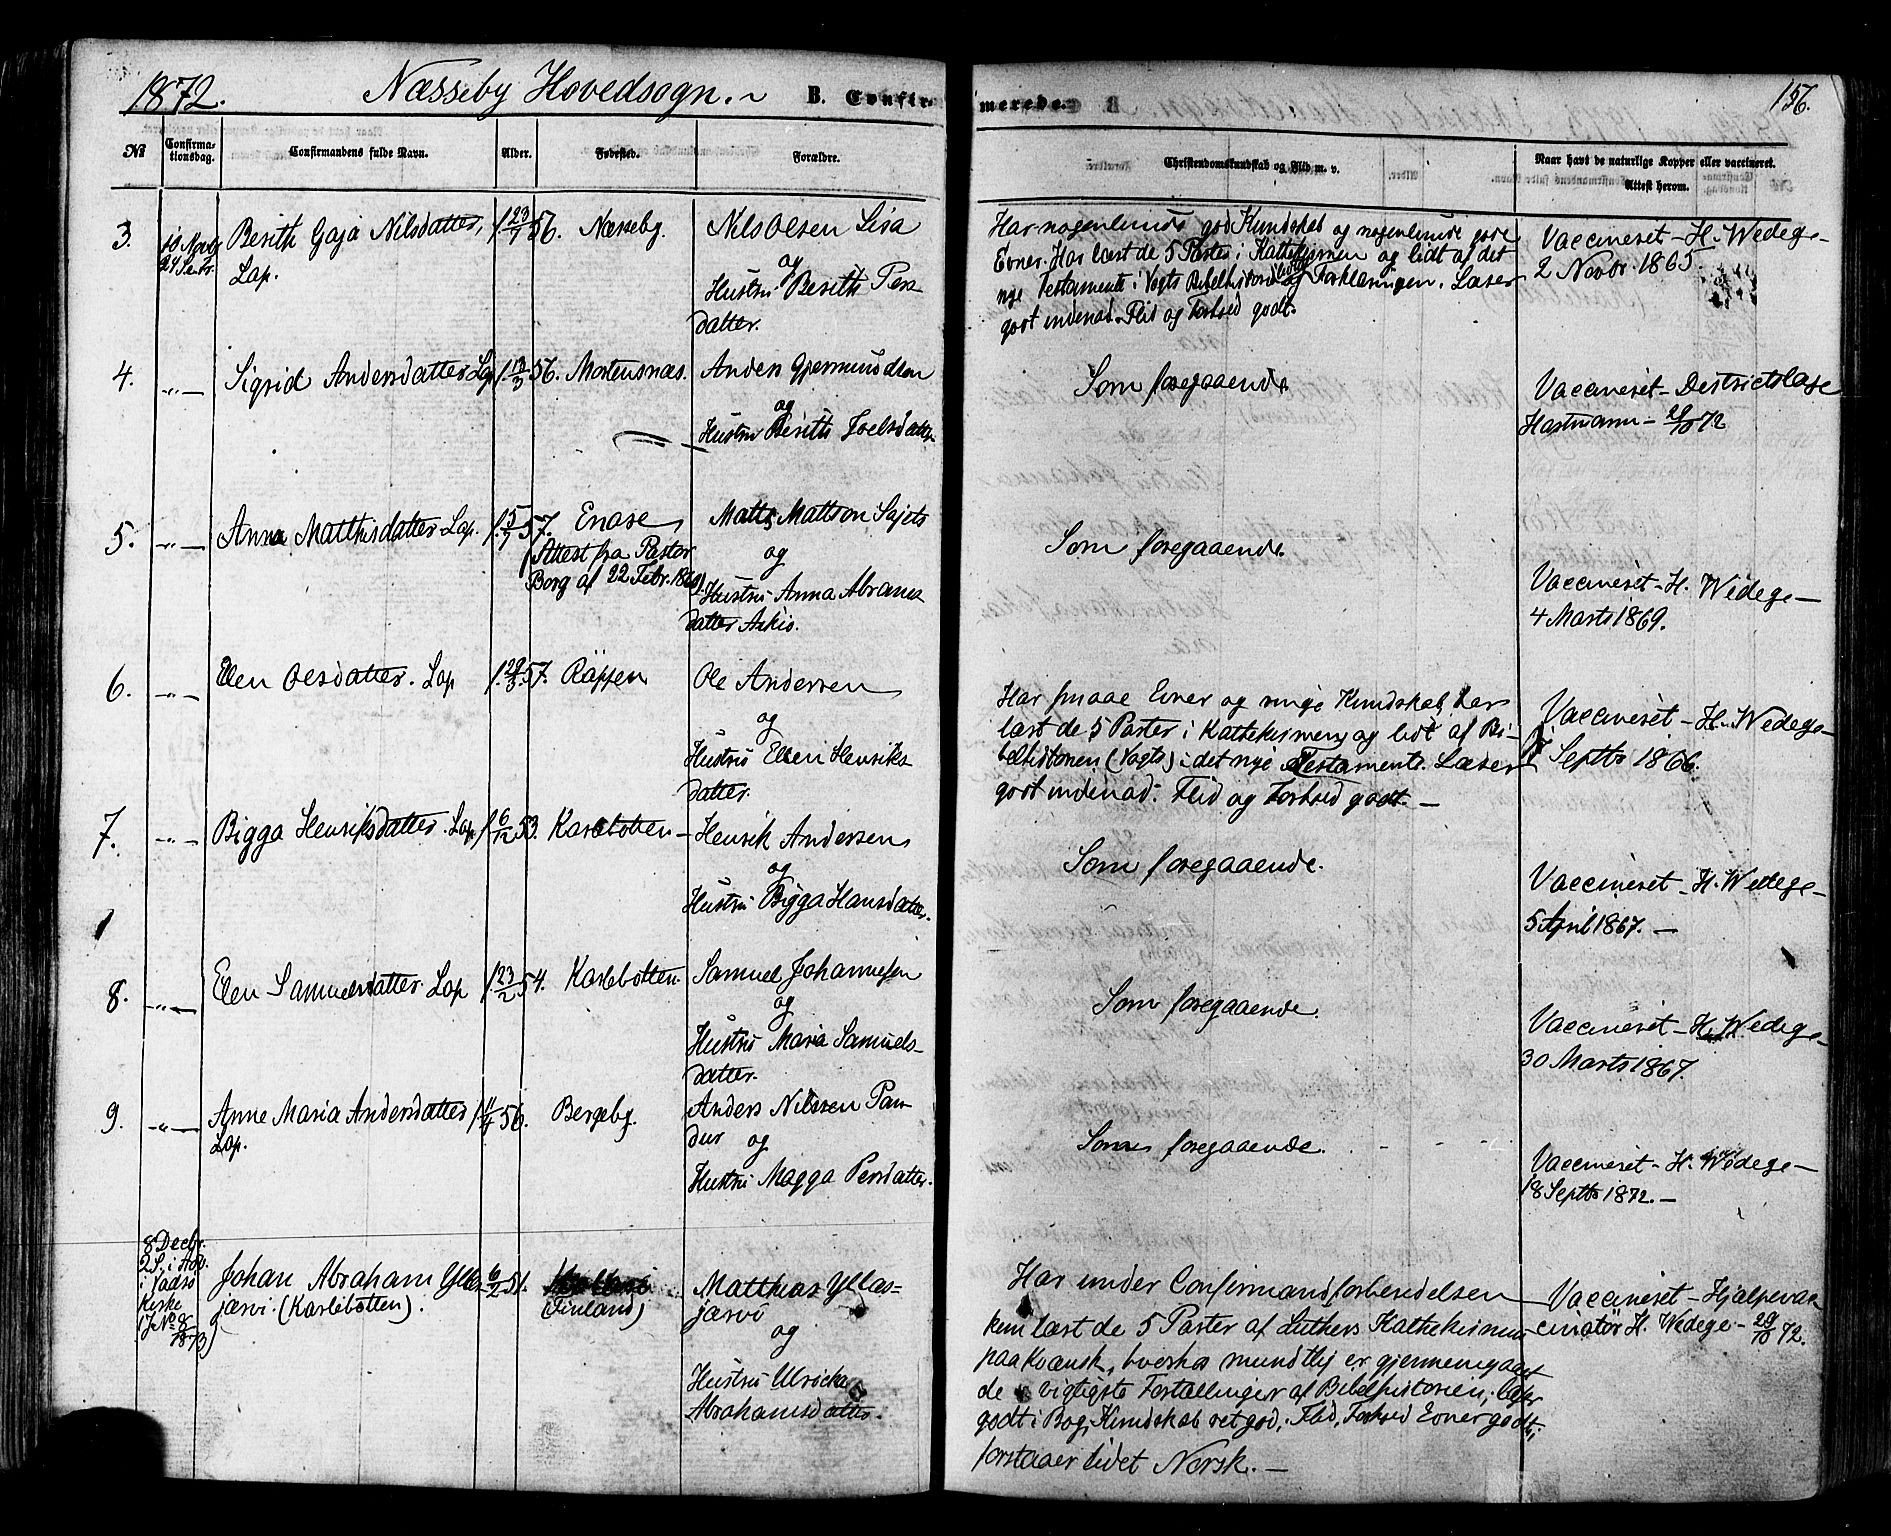 1872. Næsseby Hovedsogn. B. Confirmerede. 156.
No Confirmationsdag. Confirmandens fulde Navn. Alder. Fødested. Forældre. Christendomskundskab og Flid m. v. Naar havt de naturlige Kopper eller vaccineret. Attest herom.
3. 10 Novbr 24 S. e. Tr. Berith Gaja Nilsdatter, Lap. 23/7 56. Næsseby. Nils Olsen Lisa
og
Hustru Berith Pers
datter.
Har nogenlunde god Kundskab og nogenlunde gode
Evner. Har læst de 5 Parter i Kathekismen og lidt af det
nye Testamente i Vogts Bibelhistorie og Forklaringen. Læser
godt indenad. Flid og Forhold godt.
Vaccineret - H. Wedege -
2 Novbr. 1865
4. -"- Sigrid Andersdatter Lap 13/3 56. Mortensnæs. Anders Gjermundsen
og
Hustru Berith Joelsdatter
Som foregaaende
Vaccineret - Destrictslæge
Hartmann - 29/10 72
5. -"- Anna Matthisdatter Lap. 15/7 57. Enare
(Attest fra Pastor
Borg af 22 Febr. 1869)
Matts Mattson Sajets
og
Hustru Anna Abrams
datter Askio.
Som foregaaende.
Vaccineret - H. Wedege -
4 Marts 1869.
6. -"- Elen Olesdatter. Lap 29/3 57. Räppen Ole Andersen
og
Hustru Ellen Henriks
datter.
Har smaae Evner og ringe Kundskab, har
læst de 5 Parter i Kathekismen og lidt af Bi-
belhistorien (Vogts) i det nye Testamente. Læser
godt indenad. Flid og Forhold godt. -
Vaccineret - H. Wedege -
7 Septbr 1866.
7. -"- Bigga Henriksdatter. Lap 6/12 53. Karlebotten - Henrik Andersen
og
Hustru Bigga Hansdatter.
Som foregaaende.
Vaccineret - H. Wedege -
5 April 1867. -
8. -"- Elen Samuelsdatter Lap 23/2 54. Karlebotten. Samuel Johannesen
og
Hustru Maria Samuels-
datter.
Som foregaaende.
Vaccineret - H. Wedege -
30 Marts 1867.
9. -"- Anne Maria Andersdatter Lap. 56. Bergeby. Anders Nilssen Pan
dur og
Hustru Magga Persdatter.
Som foregaaende.
Vaccineret - H. Wedege -
18 Septbr 1872. -
8 Decbr.
2 S. i Adv.
i Vadsø
Kirke
(J No 8/1873)
Johan Abraham Yllas
järvi. (Karlebotten).
6/2 51.
(Finland)
Matthias Yllas-
järvi
og
Hustru Ulricka
Abrahamsdatter.
Har under Confirmandforberedelsen
kun læst de 5 Parter af Luthers Kathekismus
paa Kvænsk, hvorhos mundtlig er gjennemgaaet
de vigtigste Fortællinger af Bibelhistorien; læser
godt i Bog, Kundskab ret god; Flid, Forhold Evner godt;
forstaaer lidet Norsk. -
Vaccineret - Hjælpevac
cinatør H. Wedege - 29/10 72.